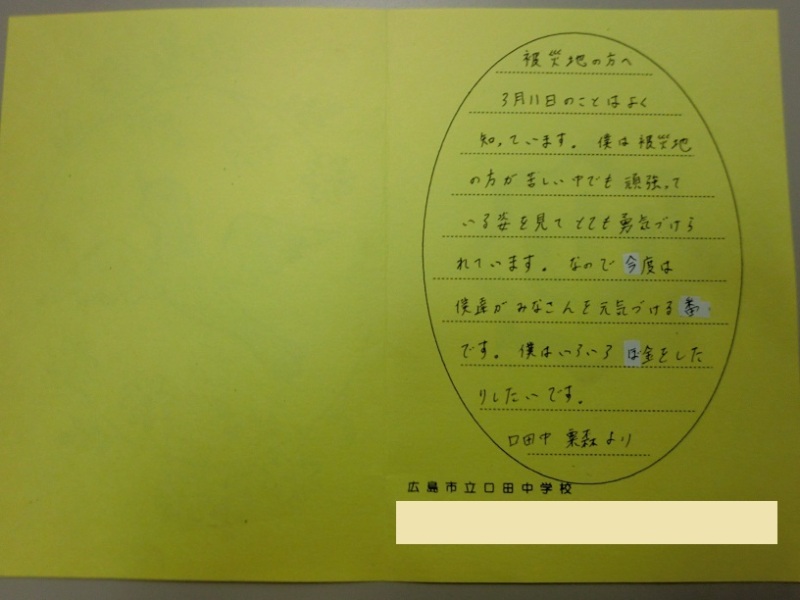 被災地の方へ
3月11日のことはよく
知っています。僕は被災地
の方が苦しい中でも頑張って
いる姿を見てとても勇気づけら
れています。なので今度は
僕達がみなさんを元気づける番
です。僕はいろいろぼ金をした
りしたいです。
口田中 栗森より
広島市立口田中学校